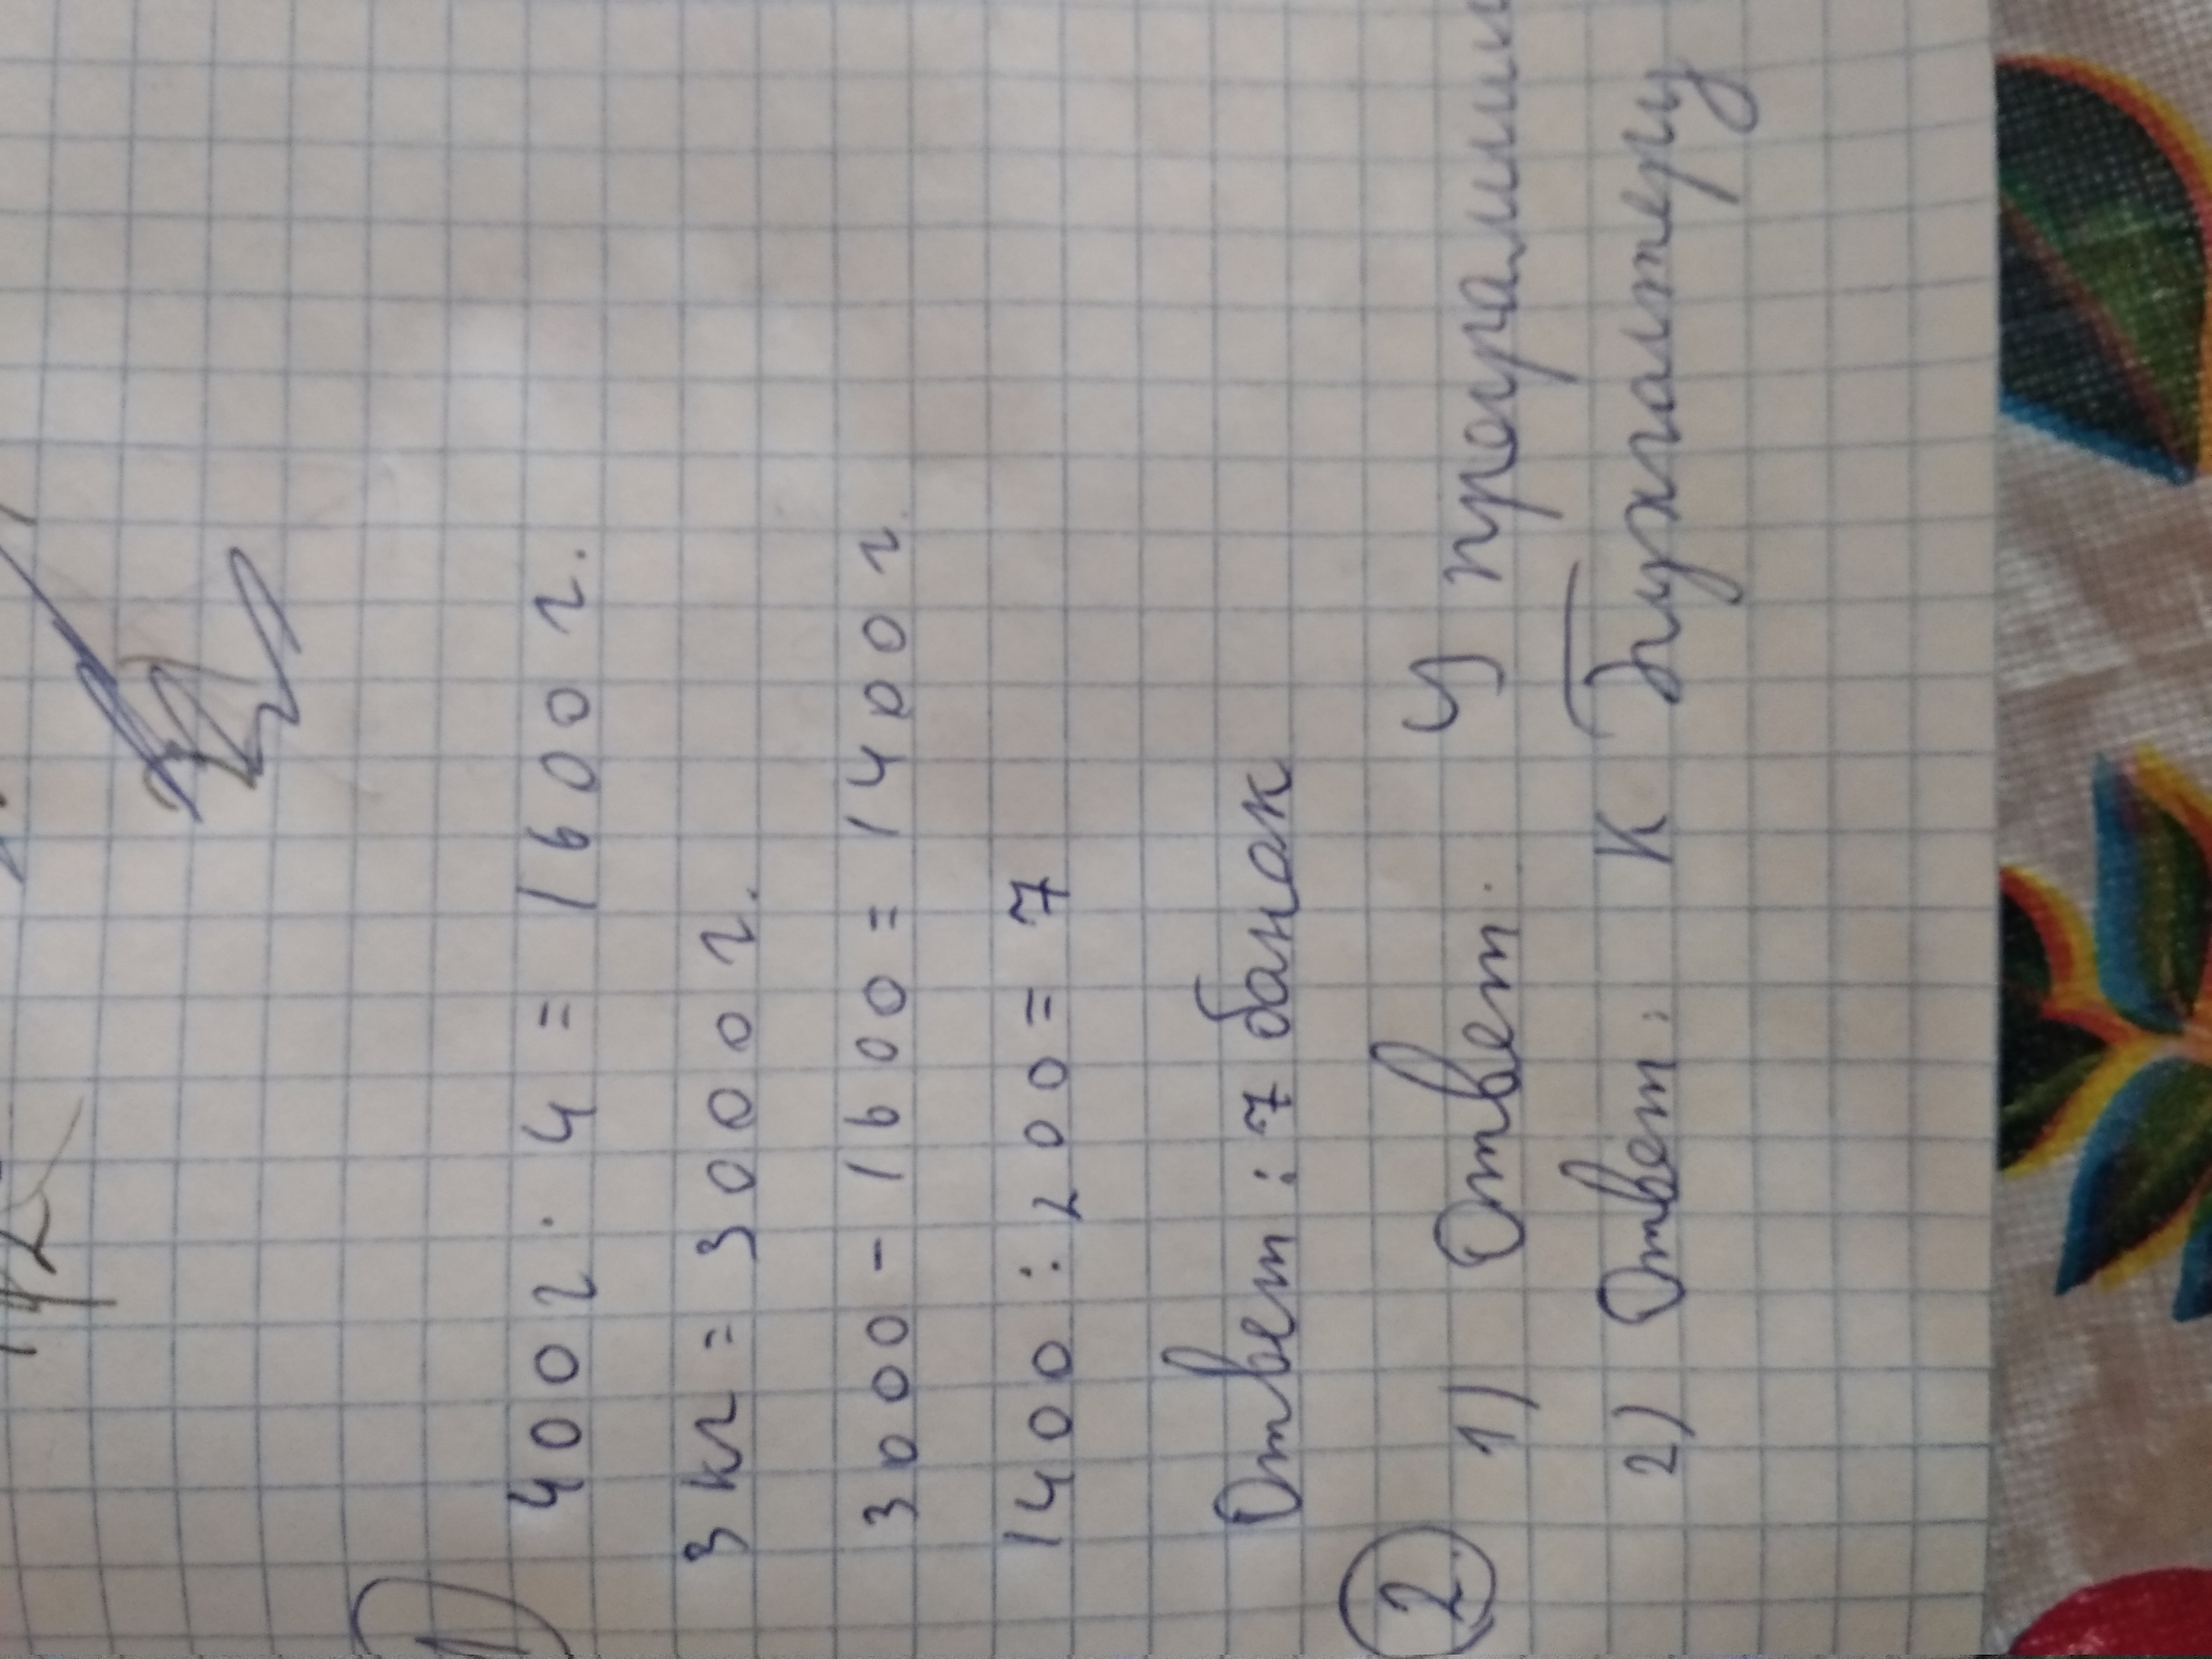 1
400 г · 4 = 1600 г.
3 кг = 3000 г.
3000 - 1600 = 1400 г
1400 : 200 = 7
Ответ : 7 банок
2. 1) Ответ. У
2) Ответ: К Бухгалтеру